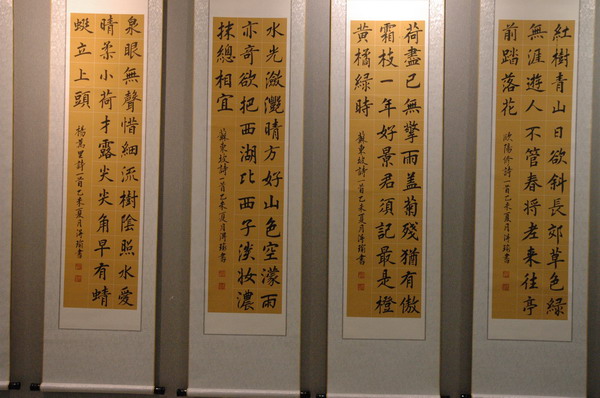 紅樹青山日欲斜長郊草色綠
無涯遊人不管春將老來往亭
前踏落花
歐陽修詩一首己未夏月書
荷盡已無擎雨盖菊殘猶有傲
霜枝一年好景君須記最是橙
黃橘綠時
蘇東坡詩一首己未夏月書
水光瀲灧晴方好山色空濛雨
亦奇欲把西湖比西子淡妝濃
抹總相宜
蘇東坡詩一首己未夏月書
泉眼無聲惜細流樹陰照水愛
晴柔小荷才露尖尖角早有蜻
蜓立上頭
楊萬里詩一首己未夏月書